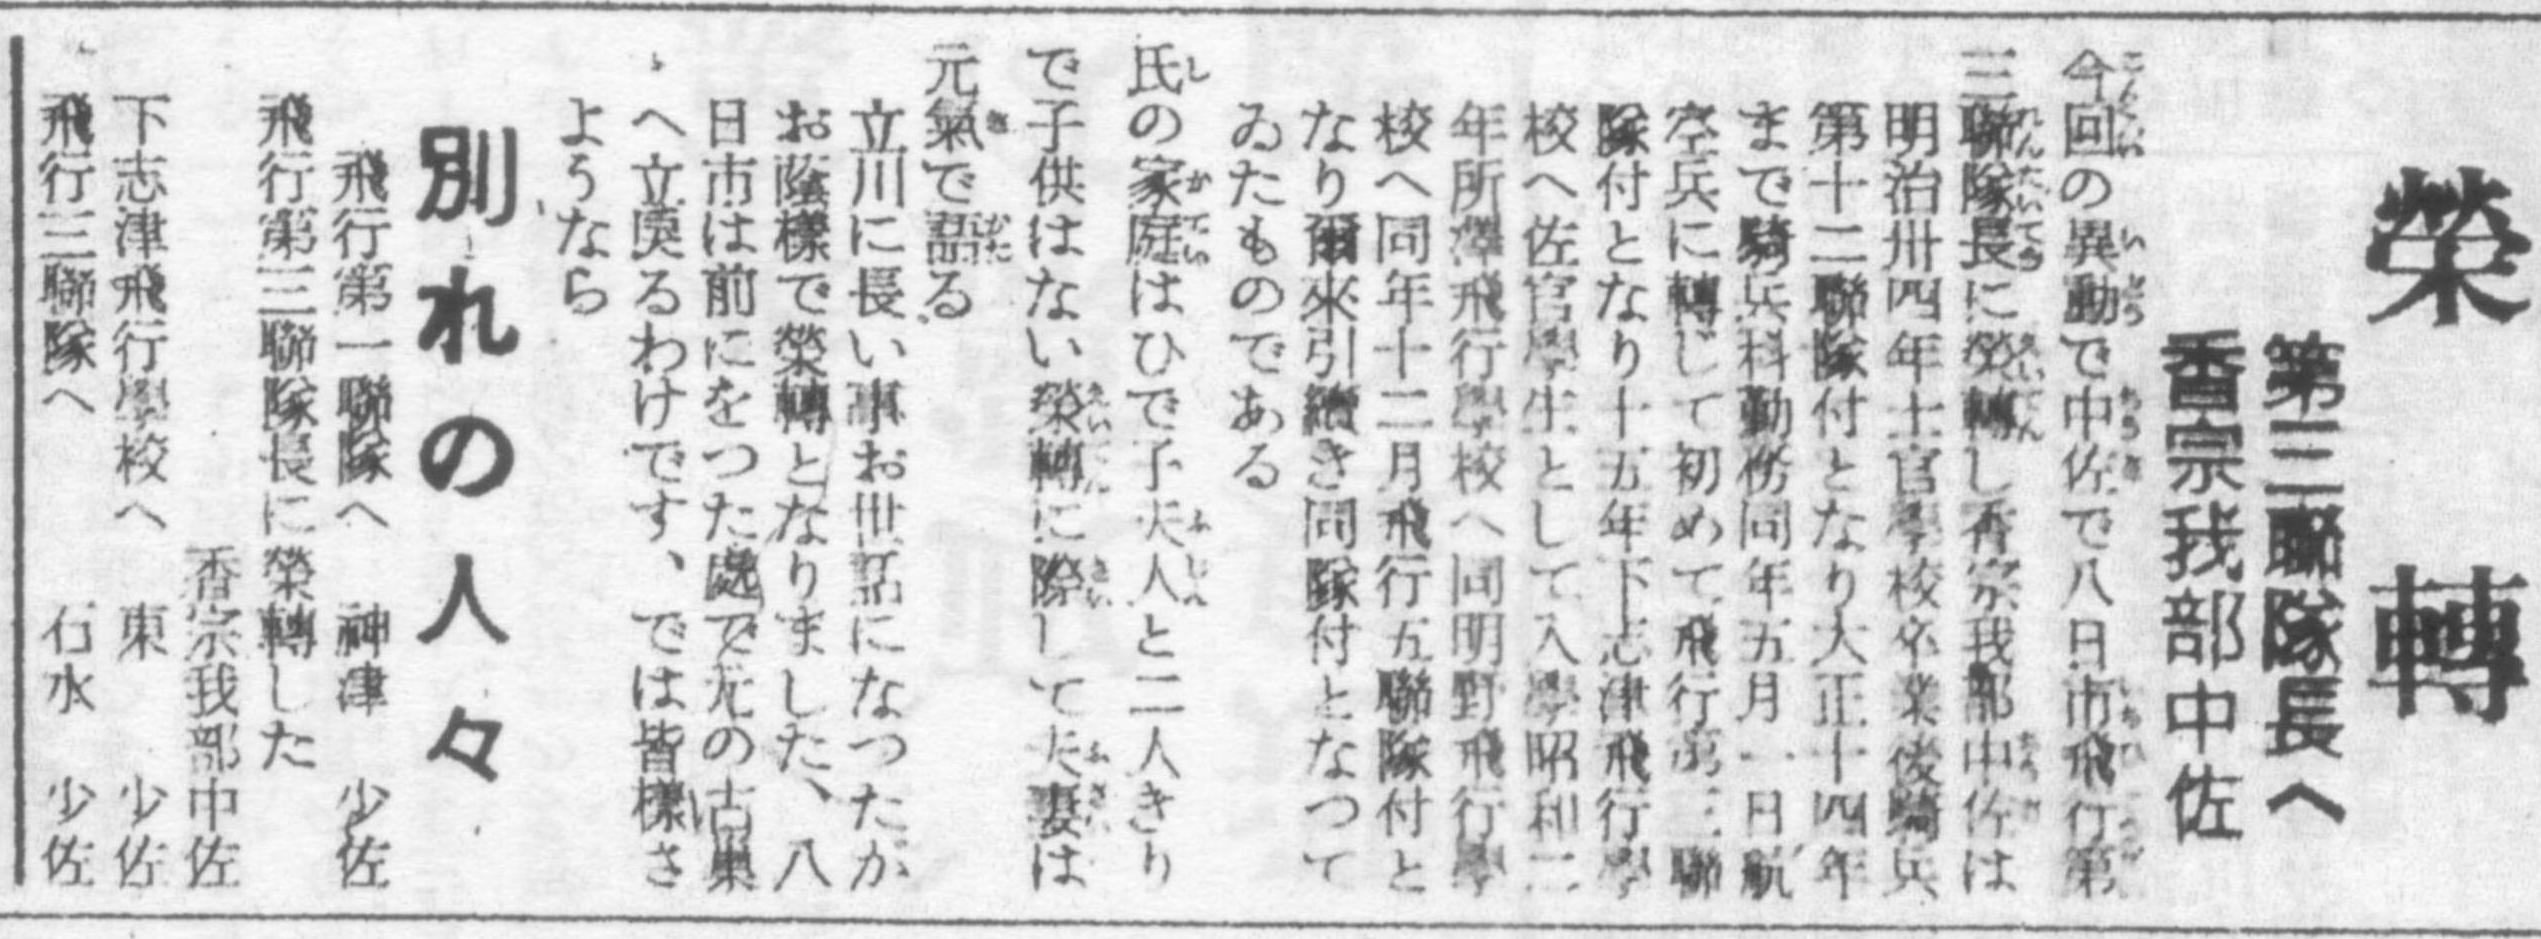 榮轉
第三聯隊長へ
香宗我部中佐
今回の異動で中佐で八日市飛行第
三聯隊長に榮轉し香宗我部中佐は
明治卅四年士官學校卒業後騎兵
第十二聯隊付となり大正十四年
まで騎兵科勤務同年五月一日航
空兵に轉じて初めて飛行第三聯
隊付となり十五年下志津飛行學
校へ佐官學生として入學昭和二
年所澤飛行學校へ同明野飛行學
校へ同年十二月飛行五聯隊付と
なり爾來引續き同隊付となつて
ゐたものである
氏の家庭はひで子夫人と二人きり
で子供はない榮轉に際して夫妻は
元氣で語る
立川に長い事お世話になつたが
お蔭樣で榮轉となりました、八
日市は前にをつた處で元の古巣
へ立戻るわけです、では皆樣さ
ようなら
別れの人々
飛行第一聯隊へ 神津 少佐
飛行第三聯隊長に榮轉した
香宗我部中佐
下志津飛行學校へ 東 少佐
飛行三聯隊へ 石水 少佐